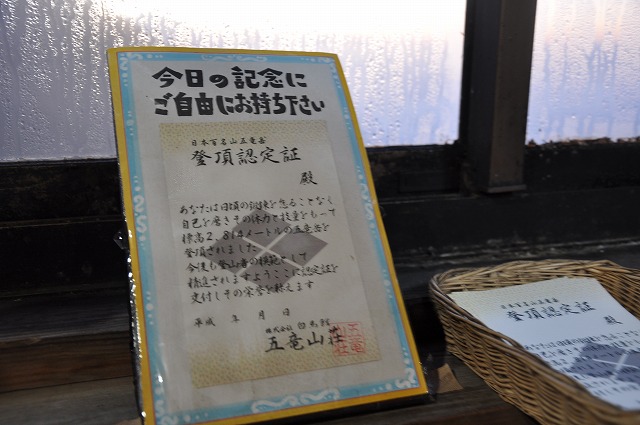 今日の記念に
ご自由にお持ち下さい
日本百名山五竜岳
登頂認定証
殿
あなたは日頃の訓練を怠ることなく
自己を磨きその体力と技量をもって
標高2,814メートルの五竜岳を
登頂されました
今後も登山者の模範として
精進されますようここに認定証を
交付しその栄誉を称えます
平成 年 月 日
株式会社 白馬館
五竜山荘
五竜
山荘
日本百名山五竜岳
登頂認定証
殿